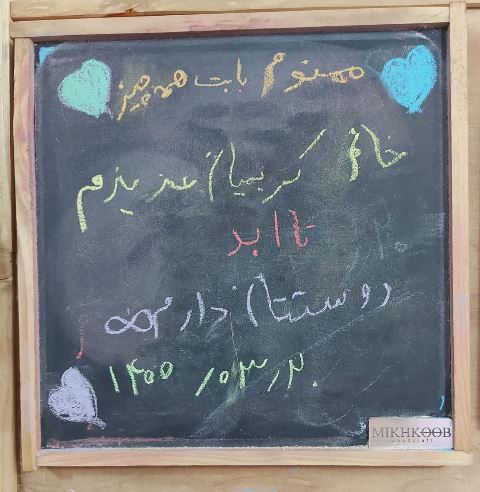 ممنونم بابت همه چیز
خانم کریمیان عزیزم
تا ابد
دوستتان دارم
۱۴۰۰/۰۳/۲۰
MIKHKOOB
woodcraft